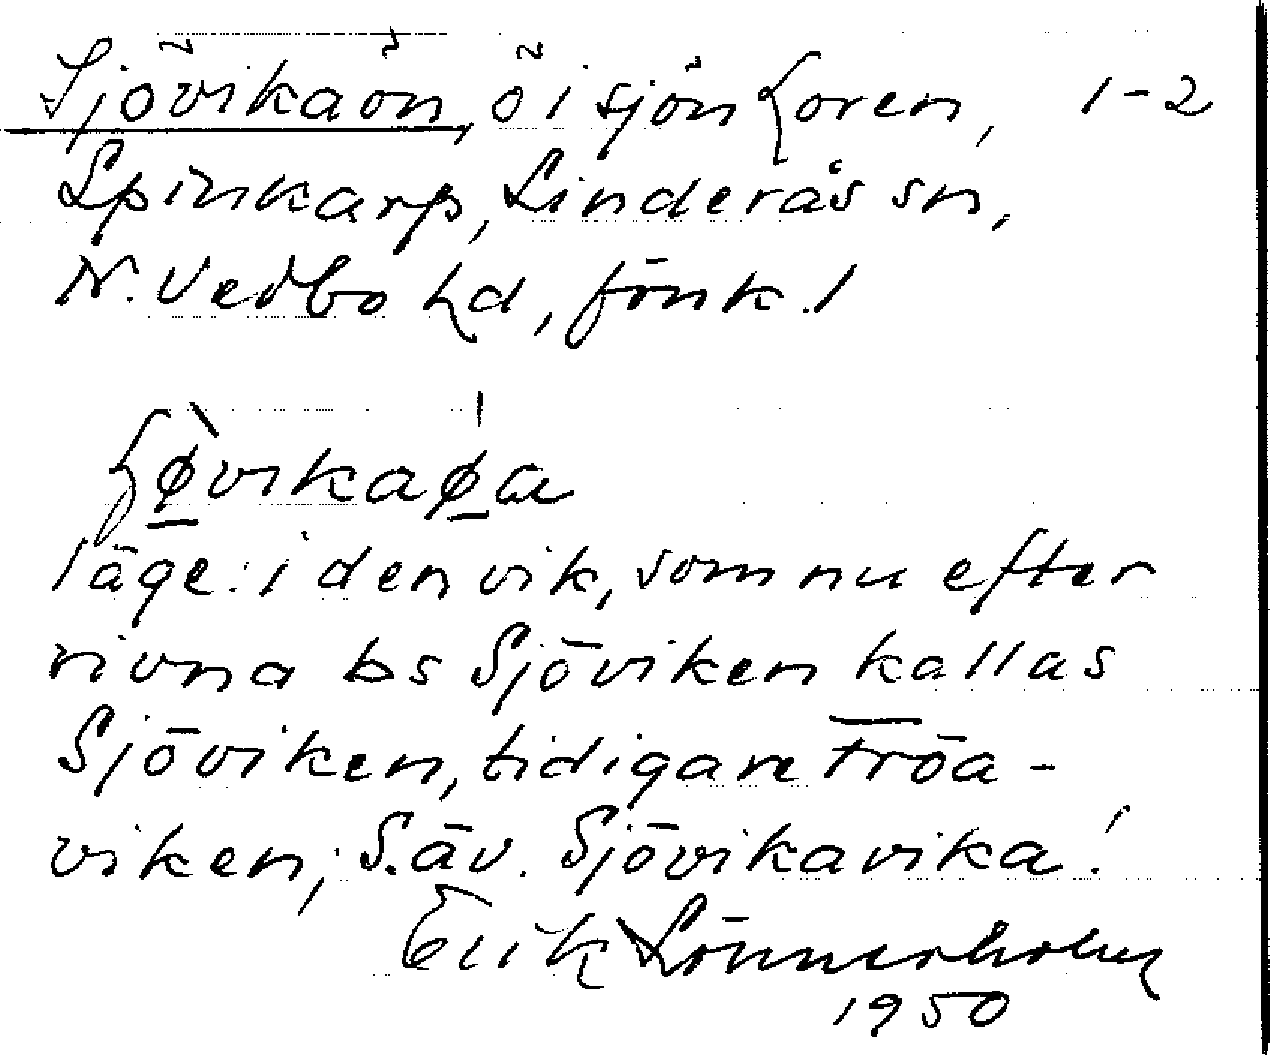 Sjövikaön, ö i sjön Loren, 1-2
Spinkarp, Linderås sn,
N. Vedbo hd, Jönk. l
läge: i den vik, som nu efter
rivna bs Sjöviken kallas
Sjöviken, tidigare Tröa-
viken; S. äv. Sjövikavika!
Erik Lönnerholm
1950